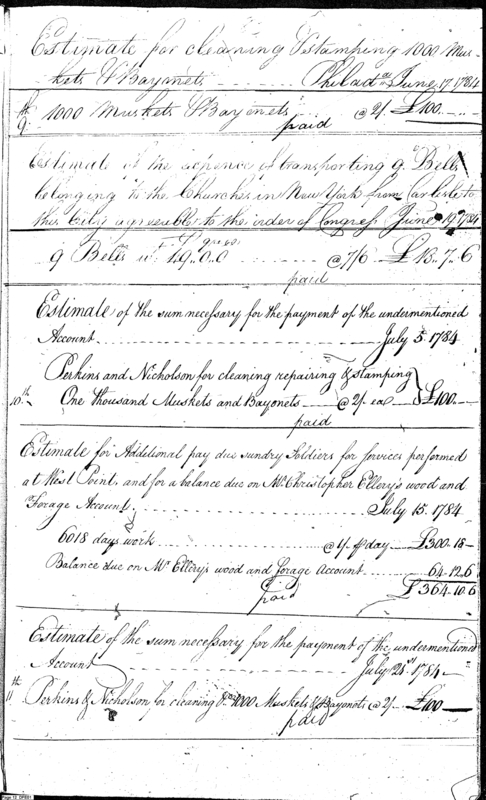 Estimate for cleaning & stamping 1000 Mus-
kets & Bayonets Philada June 17 1784
9th 1000 Muskets & Bayonets @ 2/ £100
paid
Estimate of the expence of transporting 9 Bells
belonging to the Churches in New York from Carlisle to
this City agreeable to the order of Congress June 19th 1784
9 Bells wt @ 7/6 £13.7.6
paid
Estimate of the sum necessary for the payment of the undermentioned
Account July 5. 1784
Perkins and Nicholson for cleaning repairing & stamping
10th One Thousand Muskets and Bayonets @ 2/ ea £100
paid
Estimate for Additional pay due sundry Soldiers for services performed
at West Point, and for a balance due on Mr. Christopher Ellery's wood and
Forage Account July 15. 1784
6018 days work @ 1/ day £300.18
Balance due on Mr Ellery's wood and forage Account 64.12.6
£364.10.6
paid
Estimate of the sum necessary for the payment of the undermentioned
Account July 21st 1784
11th Perkins & Nicholson for cleaning &ca 1000 Muskets & Bayonets @ 2/ £100
paid